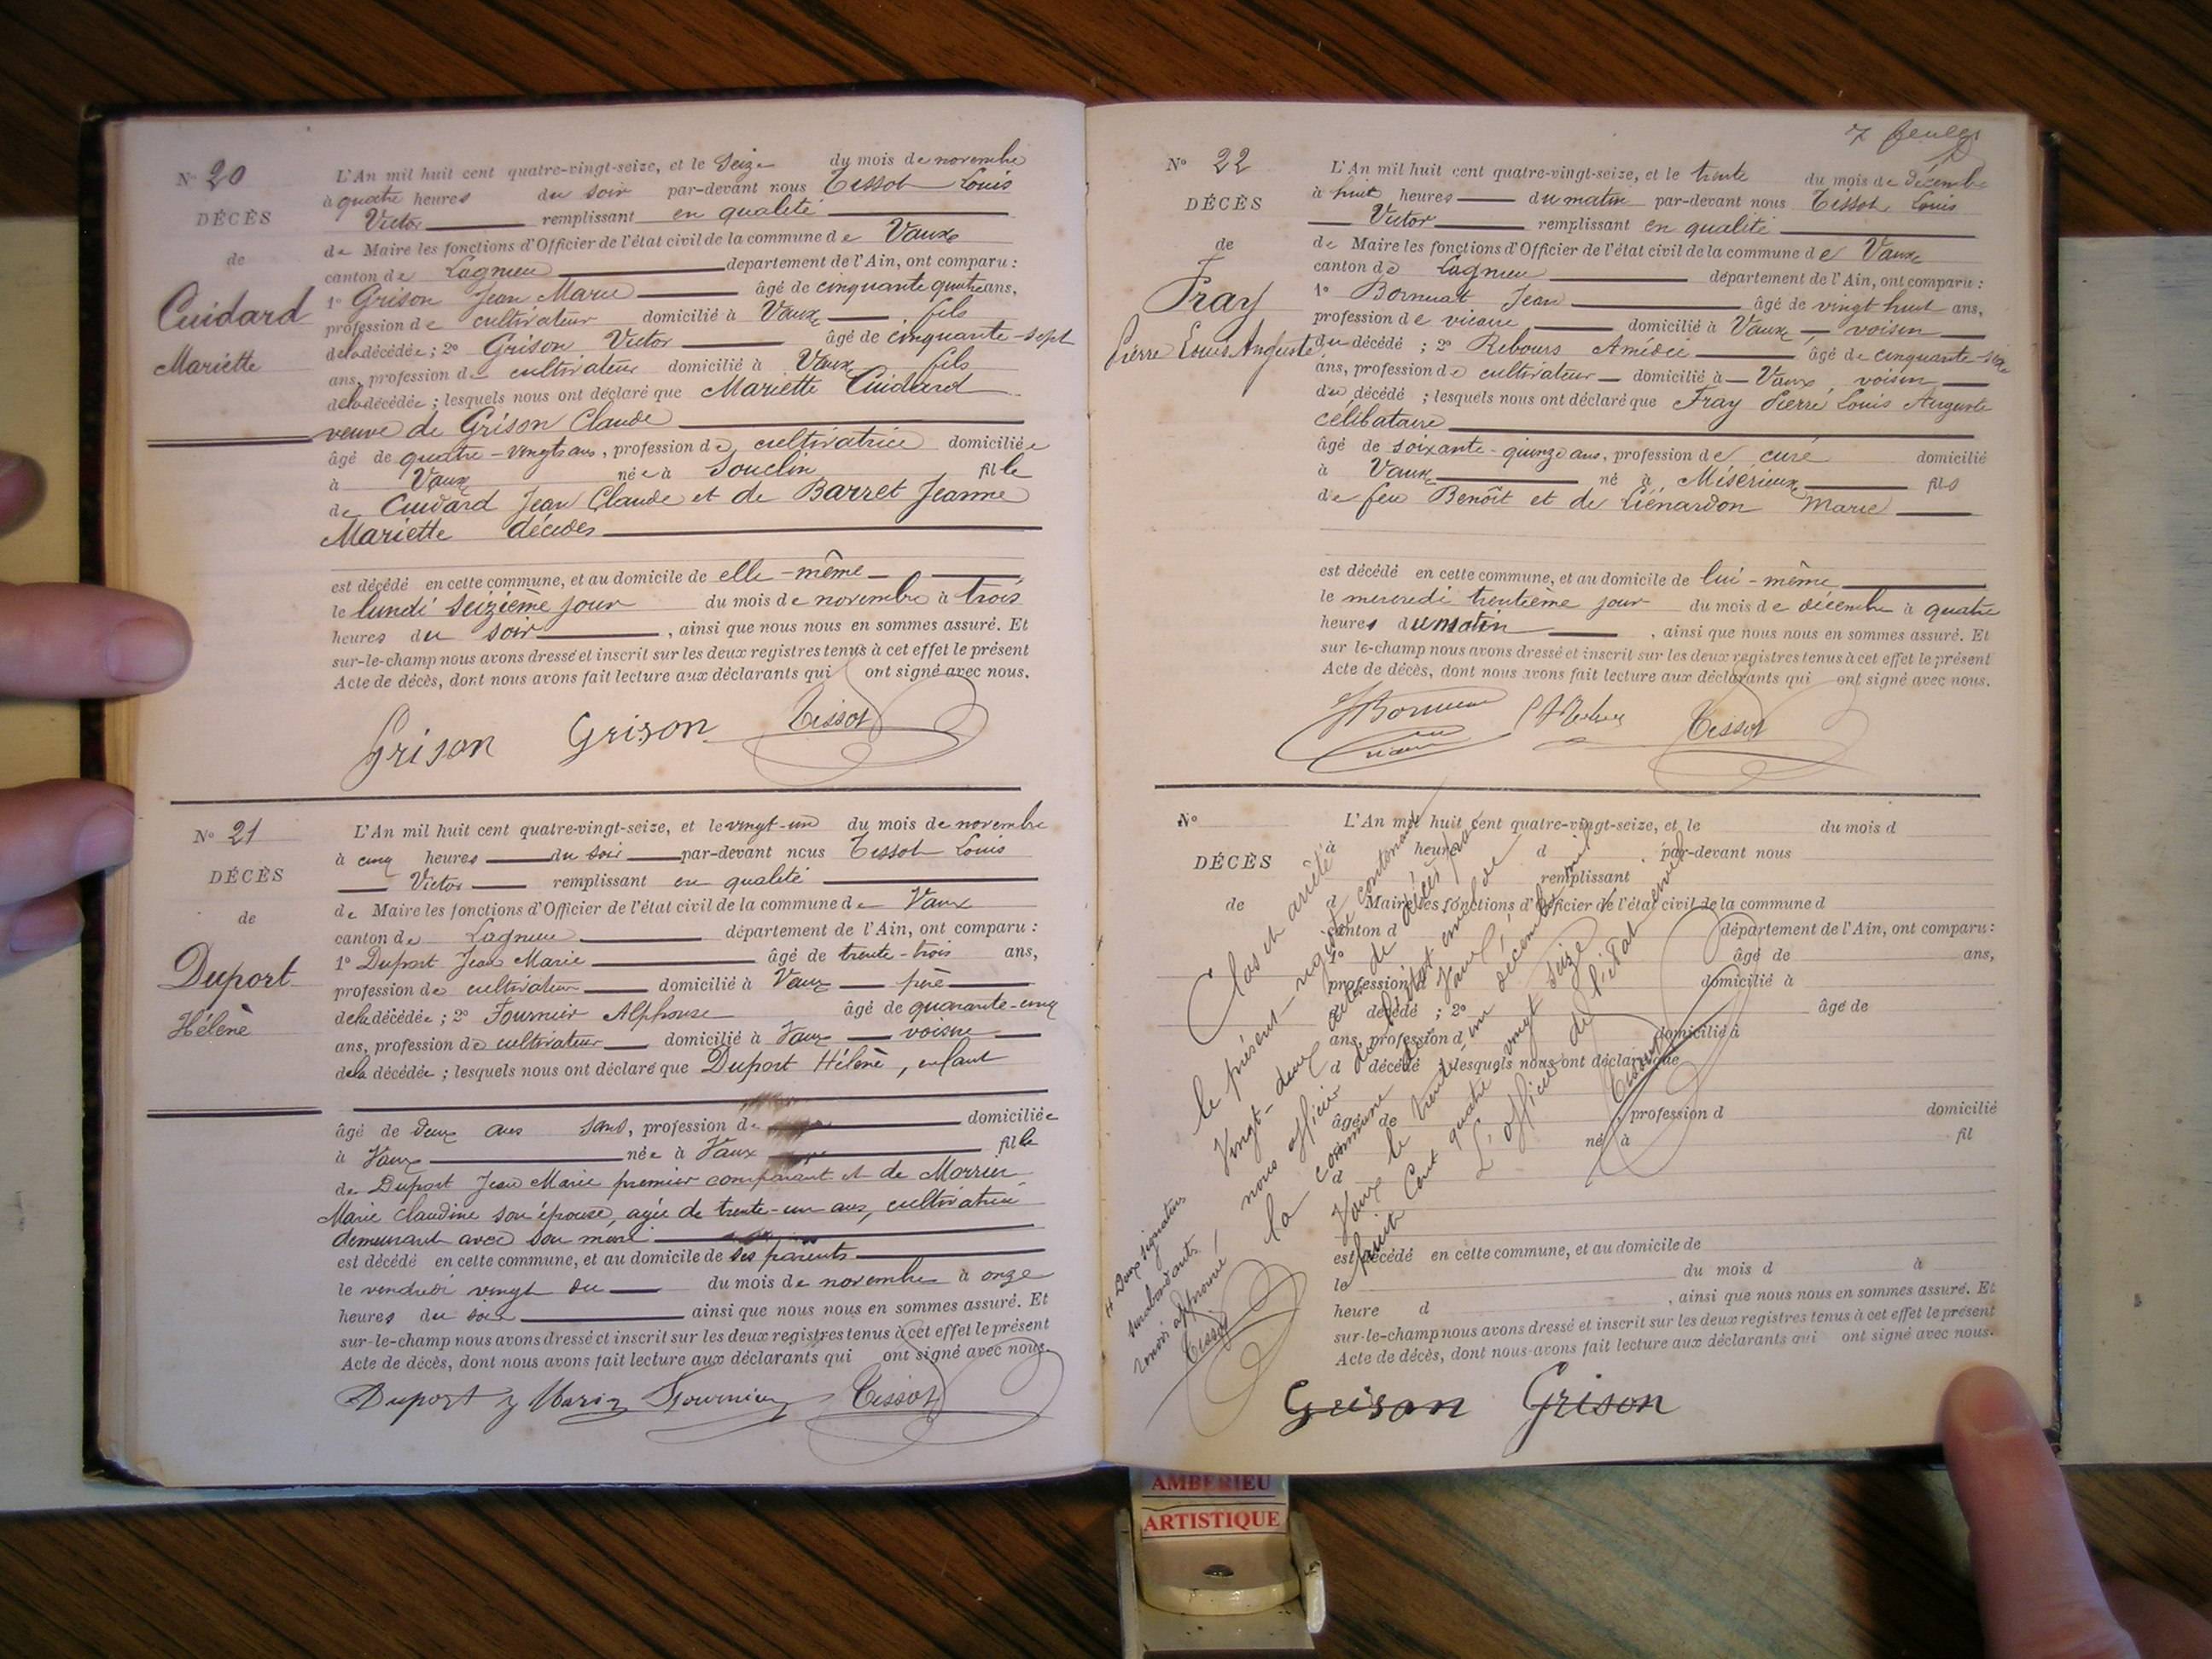 N° 20
DÉCÈS
de
Cuidard
Mariette
L'An mil huit cent quatre-vingt-seize, et le Seize du mois de novembre
à quatre heures du soir par-devant nous Tissot Louis
Victor remplissant en qualité
de Maire les fonctions d'Officier de l'état civil de la commune de Vaux
canton de Lagnieu département de l'Ain, ont comparu :
1° Grison Jean Marie âgé de cinquante quatre ans,
profession de cultivateur domicilié à Vaux fils
de la décédée ; 2° Grison Victor âgé de cinquante-sept
ans, profession de cultivateur domicilié à Vaux fils
de la décédée ; lesquels nous ont déclaré que Mariette Cuidard
veuve de Grison Claude
âgé de quatre-vingts ans, profession de cultivatrice domiciliée
à Vaux née à Souclin fille
de Cuidard Jean Claude et de Barret Jeanne
Mariette décédés
est décédé en cette commune, et au domicile de elle-même
le lundi seizième jour du mois de novembre à trois
heures du soir, ainsi que nous nous en sommes assuré. Et
sur-le-champ nous avons dressé et inscrit sur les deux registres tenus à cet effet le présent
Acte de décès, dont nous avons fait lecture aux déclarants qui ont signé avec nous.
Grison Grison Tissot
N° 21
DÉCÈS
de
Duport
Hélène
L'An mil huit cent quatre-vingt-seize, et le vingt-un du mois de novembre
à cinq heures du soir par-devant nous Tissot Louis
Victor remplissant en qualité
de Maire les fonctions d'Officier de l'état civil de la commune de Vaux
canton de Lagnieu département de l'Ain, ont comparu :
1° Duport Jean Marie âgé de trente-trois ans,
profession de cultivateur domicilié à Vaux père
de la décédée ; 2° Fournier Alphonse âgé de quarante-cinq
ans, profession de cultivateur domicilié à Vaux voisin
de la décédée ; lesquels nous ont déclaré que Duport Hélène, enfant
âgé de deux ans sans, profession de domiciliée
à Vaux née à Vaux fille
de Duport Jean Marie premier comparant et de Morrier
Marie Claudine son épouse, agée de trente-un ans, cultivatrice
demeurant avec son mari
est décédé en cette commune, et au domicile de ses parents
le vendredi vingt du du mois de novembre à onze
heures du soir ainsi que nous nous en sommes assuré. Et
sur-le-champ nous avons dressé et inscrit sur les deux registres tenus à cet effet le présent
Acte de décès, dont nous avons fait lecture aux déclarants qui ont signé avec nous.
Duport j Marie Fournier Tissot
N° 22
DÉCÈS
de
Fray
Pierre Louis Auguste
L'An mil huit cent quatre-vingt-seize, et le trente du mois de décembre
à huit heures du matin par-devant nous Tissot Louis
Victor remplissant en qualité
de Maire les fonctions d'Officier de l'état civil de la commune de Vaux
canton de Lagnieu département de l'Ain, ont comparu :
1° Bornuat Jean âgé de vingt huit ans,
profession de vicaire domicilié à Vaux, voisin
du décédé ; 2° Rebours Amédée âgé de cinquante-six
ans, profession de cultivateur domicilié à Vaux, voisin
du décédé ; lesquels nous ont déclaré que Fray Pierre Louis Auguste
célibataire
âgé de soixante-quinze ans, profession de curé domicilié
à Vaux né à Misérieux fils
de feu Benoît et de Liénardon Marie
est décédé en cette commune, et au domicile de lui-même
le mercredi trentième jour du mois de décembre à quatre
heures du matin, ainsi que nous nous en sommes assuré. Et
sur le-champ nous avons dressé et inscrit sur les deux registres tenus à cet effet le présent
Acte de décès, dont nous avons fait lecture aux déclarants qui ont signé avec nous.
Tissot
N°
DÉCÈS
de
L'An mil huit cent quatre-vingt-seize, et le du mois d
à heure d par-devant nous
remplissant
d Maire les fonctions d'Officier de l'état civil de la commune d
canton d département de l'Ain, ont comparu :
1° âgé de ans,
profession d domicilié à
d décédé ; 2° âgé de
ans, profession d domicilié à
d décédé ; lesquels nous ont déclaré que
âgé de profession d domicilié
à né à fil
d
est décédé en cette commune, et au domicile de
le du mois d à
heure d, ainsi que nous nous en sommes assuré. Et
sur-le-champ nous avons dressé et inscrit sur les deux registres tenus à cet effet le présent
Acte de décès, dont nous avons fait lecture aux déclarants qui ont signé avec nous.
Clos et arrêté
le présent registre contenant
vingt-deux actes de décès par
nous officier de l'état civil de
la commune de Vaux
Vaux le trente un décembre mil
huit cent quatre vingt seize
L'officier de l'état civil
Tissot
Deux signatures
surabondantes
renvoi approuvé
Tissot
Grison Grison
AMBERIEU
ARTISTIQUE